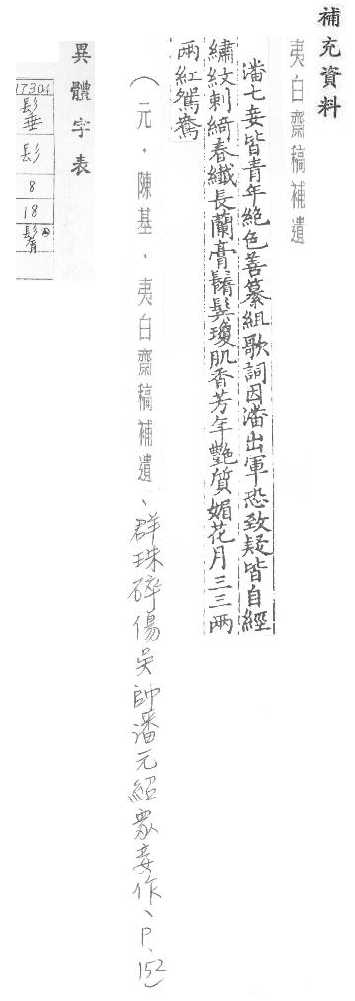 補充資料
夷白齋稿補遺
潘七妾皆青年絕色善纂組歌詞因潘出軍恐致疑皆自經
繡紋刺綺春纖長蘭膏鬅鬢瓊肌香芳年艷質媚花月三三兩
兩紅鴛鴦
(元.陳基.夷白齋稿補遺、群珠碎傷吳帥潘元紹眾妾作、P.152)
異體字表
17304
髟
8
18